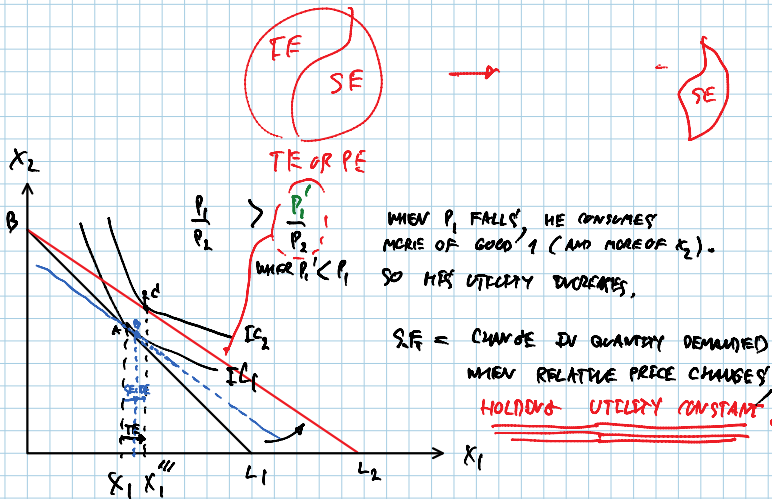 IE
SE
SE
TE OR PE
X₂
B
P₁/P₂ > P₁'/P₂
WHEN P₁' < P₁
WHEN P₁ FALLS, HE CONSUMES
MORE OF GOOD 1 (AND MORE OF X₂).
SO HIS UTILITY INCREASES.
SE = CHANGE IN QUANTITY DEMANDED
WHEN RELATIVE PRICE CHANGES,
HOLDING UTILITY CONSTANT.
C
A
B
IC₂
IC₁
SE
IE
TE
X₁
X₁'''
L₁
L₂
X₁